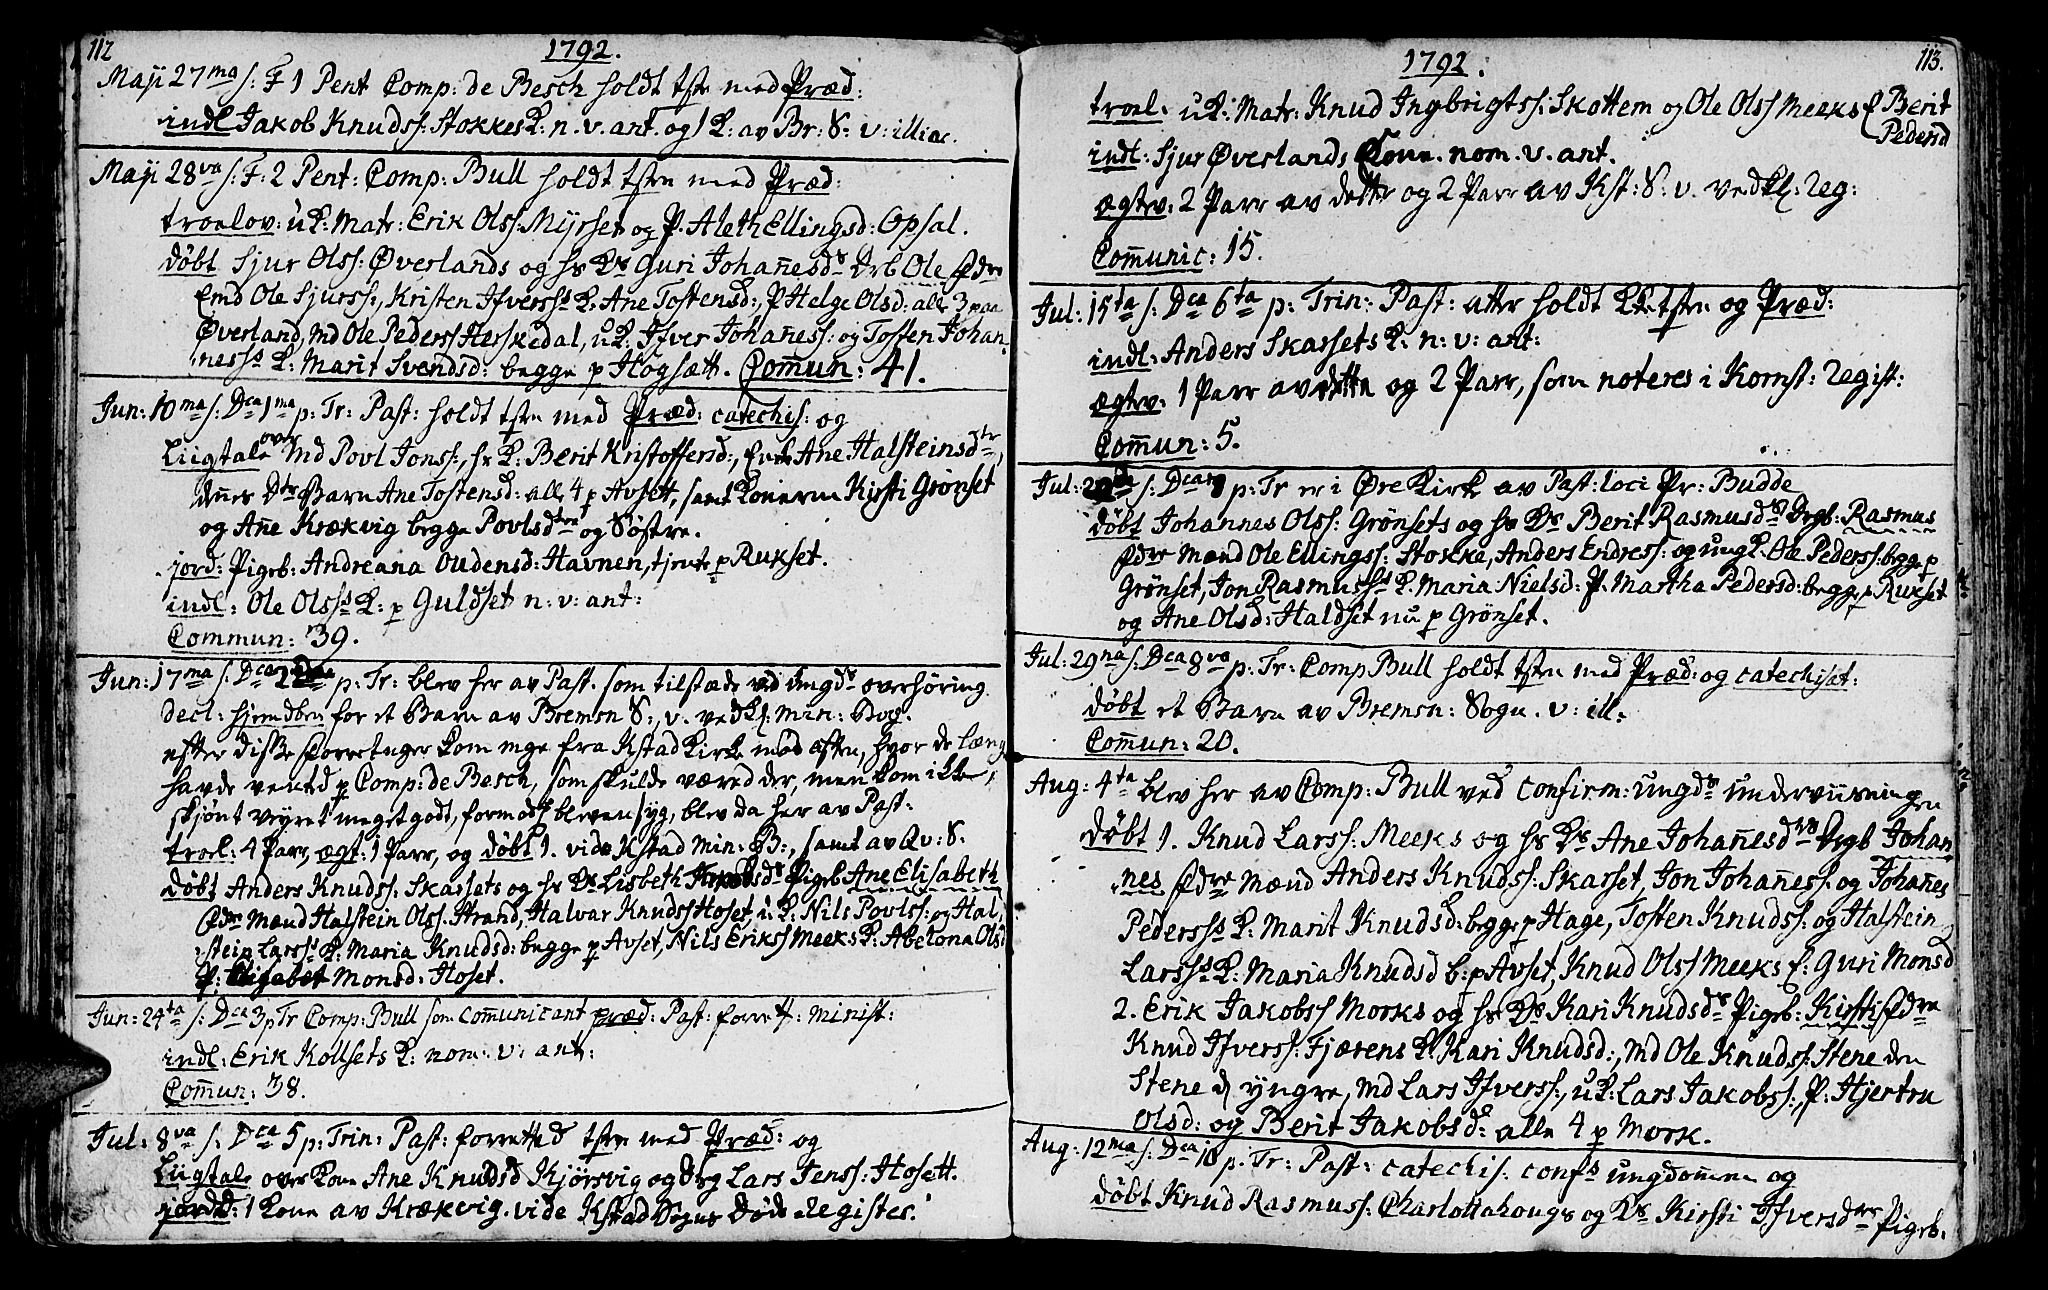 112
1792.
Maji 27ma s: F 1 Pent Comp: de Besch holdt tsten med Præd:
indl Jakob Knuds: Stokkes K: n. v. ant. og 1 K: av Br: S: v: illiac.
Maji 28va s: F: 2 Pent: Comp: Bull holdt tsten med Præd:
troelov: u K: Matr: Erik Olss: Myrset og P. Aleth Ellingsd: Opsal.
døbt Sjur Olss: Øverlands og hs Ks Guri Johañesds Drb Ole Fdre
Emd Ole Sjurss:, Kristen Ifverss K: Ane Tostensd:, P Helge Olsd: alle 3 paa
Øverland, Md Ole Pederss Herskedal, u K: Ifver Johañess: og Tosten Johan-
nesss K: Marit Svendsd: begge p Høgsætt. Com̄un: 41.
Jun: 10ma s: Dca 1ma p: Tr: Past: holdt tsten med Præd: catechis: og
Liigtale over Md Povl Jonss:, hs K: Berit Kristoffersd:, Enke Ane Halsteinsdtr,
dnes Dtrs Barn Ane Tostensd: alle 4 p Avsett, samt Konerne Kirsti Grønset
og Añe Krækvig begge Povlsdtre og Søstre.
jord: Pigeb: Andreana Oudensd: Havnen, tjente p Rukset.
indl: Ole Olsss K: p Guldset n: v: ant:
Commun: 39.
Jun: 17ma s: Dca 2da p: Tr: blev her av Past. som tilstæde ved ungds overhøring
decl: hjemdben for et Barn av Bremsn S:, v. ved Kl: Min: Bog.
efter disse Forretnger kom mge fra Kstad Kirke mod aften, hvor de læng
havde ventd p Comp: de Besch, som skulde væred der, men kom ikke,
skjønt veyret meget godt, formodl bleven syg, blev da her av Past:
troel: 4 Parr, ægt: 1 Parr, og døbt 1. vide Kstad Min: B:, samt av Qv: S.
døbt Anders Knudss: Skassets og hs Ks Lisbeth ds Pigeb: Ane Elisabeth
Fdre Mænd Halstein Olss: Strand, Halvar Knudss Hoset, u K: Nils Povlss: og Hal-
stein Larsss K: Maria Knudsd: begge p Avset, Nils Erikss Meeks K: Abelona Olsd
P. Elisabet Monsd: Hoset.
Jun: 24ta s: Dca 3 p Tr Comp: Bull som com̄unicant præd: Past: forrett: minist:
indl: Erik Kollsets K: nom: v: ant:
Com̄un: 38.
Jul: 8va s: Dca 5 p: Trin: Past: forretted tsten med Præd: og
Liigtale over Kone Ane Knudsd Kjørsvig og Drg Lars Jenss: Hosett.
jordd: 1 Kone av Krækvig. vide Kstad Sogns Døde Register.
113.
1792.
troel: u K: Matr: Knud Ingbrigtss: Skottem og Ole Olss Meeks E Berit
Pedersd
indl: Sjur Øverlands Kone. nom. v. ant.
ægtev: 2 Parr av dette og 2 Parr av Kst: S: v. ved Kl: Reg:
Com̄unic: 15.
Jul: 15ta s: Dca 6ta p: Trin: Past: atter holdt Ketsten og Præd:
indl: Anders Skassets K: n: v: ant:
ægtev: 1 Parr av dette og 2 Parr, som noteres i Kornst: Regist:
Com̄un: 5.
Jul: s: Dca p: Tr er i Øre Kirke av Past: loci Pr: Budde
døbt Johannes Olss: Grønsets og hs Ks Berit Rasmusds Drgb: Rasmus
Fdre Mænd Ole Ellingss: Stokke, Anders Endress: og ung K: Ole Pederss: begg p
Grønset, Jon Rasmusss K: Maria Nielsd: P. Martha Pedersd: begge p Rukset
og Ane Olsd: Haldset nu p Grønset.
Jul: 29na s: Dca 8va p: Tr: Comp Bull holdt tsten med Præd: og catechisat:
døbt et Barn av Bremsn: Sogn. v: ill.
Com̄un: 20.
Aug: 4ta blev her av Comp: Bull ved confirm: ungds underviisningen
døbt 1. Knud Larss: Meeks og hs Ks Ane Johañesdrs Drgb Johan-
nes Fdre Mænd Anders Knudss: Skasset, Jon Johañess: og Johañes
Pedersss K: Marit Knudsd: begge p Hage, Tosten Knudss: og Halstein
Larsss K: Maria Knudsd b: p Avset, Knud Olss Meeks E: Guri Monsd
2. Erik Jakobss Morks og hs Ks Kari Knudsds Pigeb: Kirsti Fdre
Knud Ifverss: Fjærens K: Kari Knudsd:, Md Ole Knudss: Stene den
Stene d yngre, Md Lars Ifverss:, u K: Lars Jakobss:, P: Hjertru
Olsd: og Berit Jakobsd: alle 4 p Mork.
Aug: 12ma s: Dca 10 p: Tr: Past: catechis: confs ungdom̄en og
døbt Knud Rasmuss: Charlottahougs og Ks Kirsti Ifversdrs Pigeb: